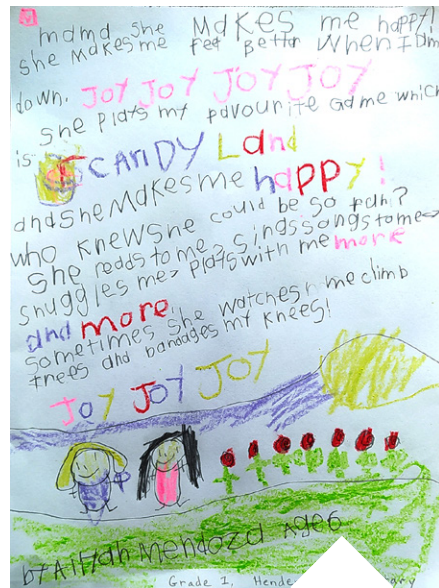 mama she Makes me happy!
she Makes me feel better when I am
down. JOY JOY JOY JOY
she plays my favourite Game which
is CANDY Land
and she Makes me happy!
who knew she could be so fun?
She reads to me, sings songs to me
snuggles me, plays with me more
and more
sometimes she watches me climb
trees and bandages my knees!
JOY JOY JOY
by Mendoza Age 6
Grade 1,